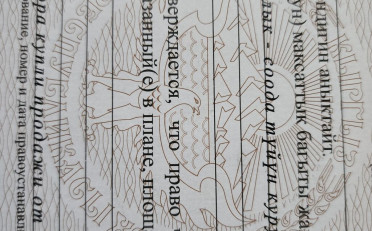 ндигин аныктайт.
үн) максаттык багыты жа
лык - соода түйүн кур
верждается, что право
азанный(е) в плане, площ
ра купли продажи от
ование, номер и дата правоустанавли